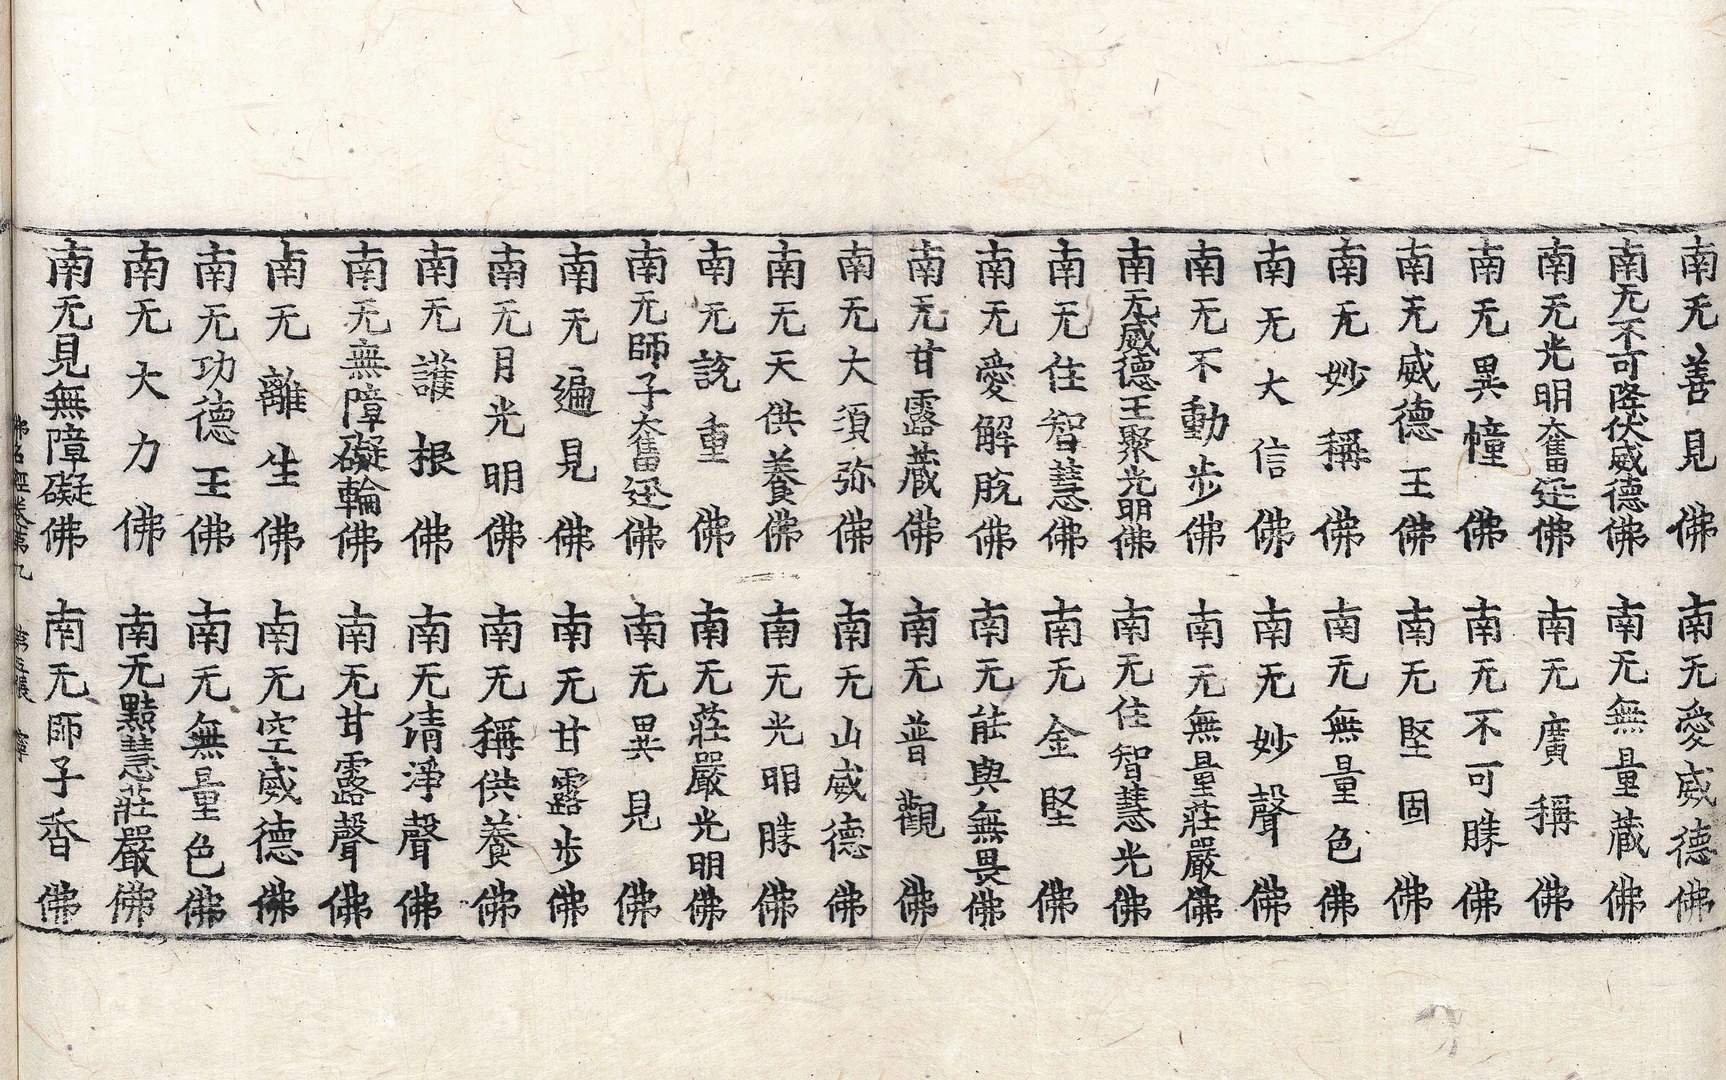 南无善見佛　南无愛威德佛
南无不可降伏威德佛　南无無量藏佛
南无光明奮迅佛　南无廣稱佛
南无異幢佛　南无不可勝佛
南无威德王佛　南无堅固佛
南无妙稱佛　南无無量色佛
南无大信佛　南无妙聲佛
南无不動步佛　南无無量莊嚴佛
南无威德王聚光明佛　南无住智慧光佛
南无住智慧佛　南无金堅佛
南无愛解脫佛　南无能與無畏佛
南无甘露藏佛　南无普觀佛
南无大須弥佛　南无山威德佛
南无天供養佛　南无光明勝佛
南无說重佛　南无莊嚴光明佛
南无師子奮迅佛　南无異見佛
南无遍見佛　南无甘露步佛
南无月光明佛　南无稱供養佛
南无護根佛　南无清淨聲佛
南无無障礙輪佛　南无甘露聲佛
南无離生佛　南无空威德佛
南无功德王佛　南无無量色佛
南无大力佛　南无黠慧莊嚴佛
南无見無障礙佛　南无師子香佛
佛名經卷第九　第五張